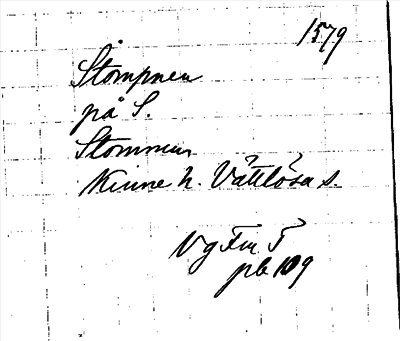 1579
Stompnen
på S.
Stommen
Kinne h. Vättlösa s.
Vg Fm 5
pb 109